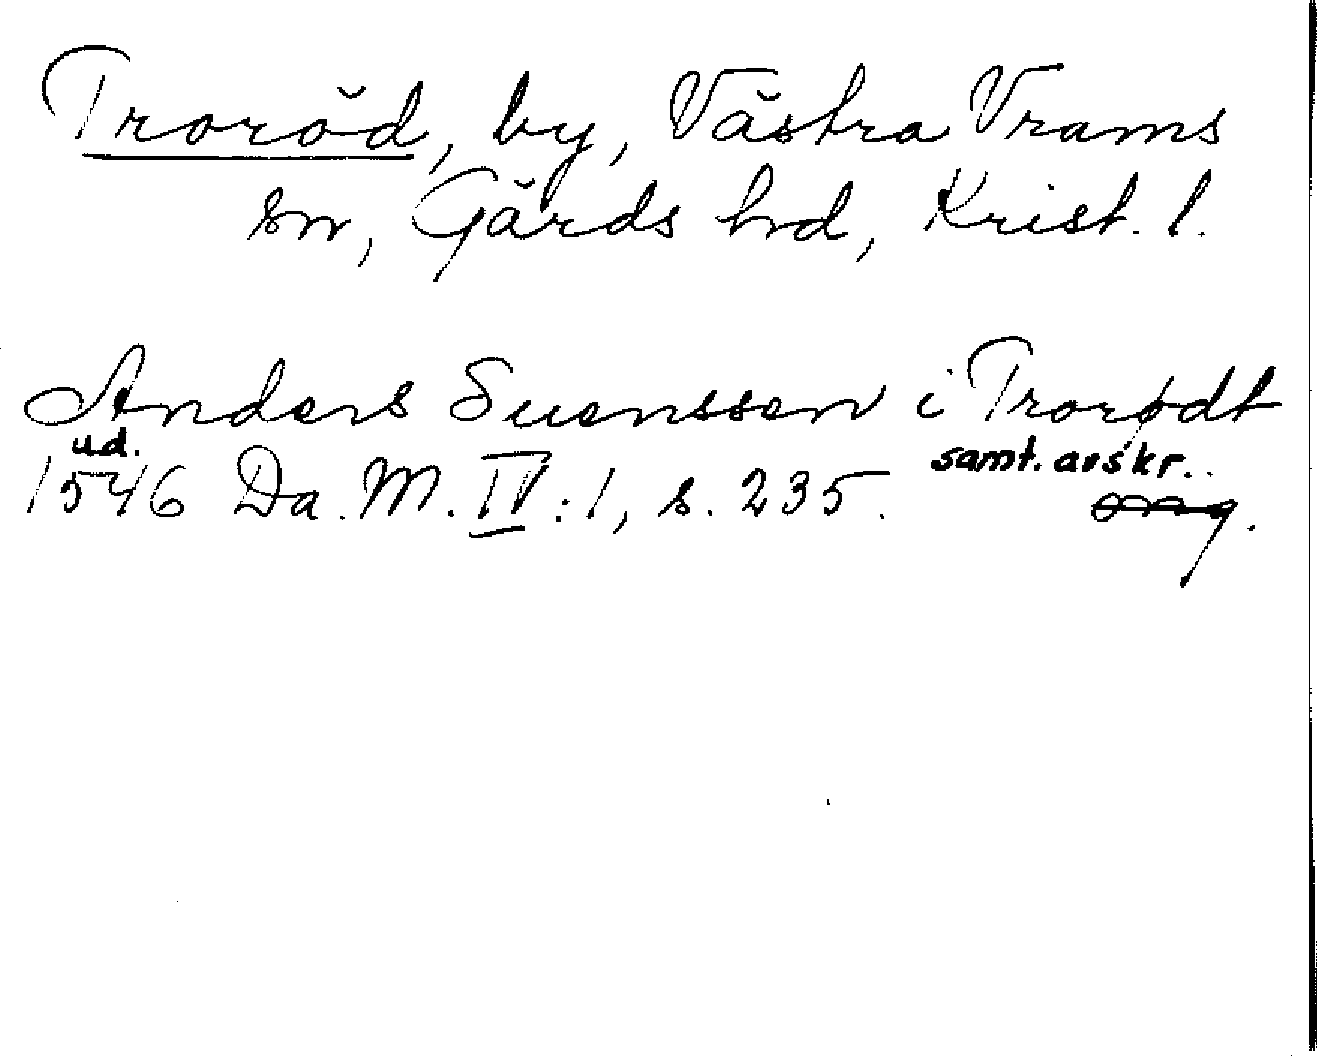 Troröd, by, Västra Vrams
sn, Gärds hrd, Krist. l.
Anders Suenssen i Trorødt
ud.
samt. avskr..
1546 Da. M. IV:1, s. 235. orig.